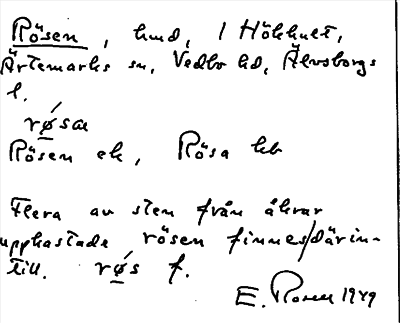 Rösen, hmd, 1 Hökhult,
Ärtemarks sn, Vedbo hd, Älvsborgs
l.
rǿsæ
Rösen ek, Rösa kb
Flera av sten från åkrar
upphastade rösen finnes/därin-
till. rǿs f.
E. Rosen 1949